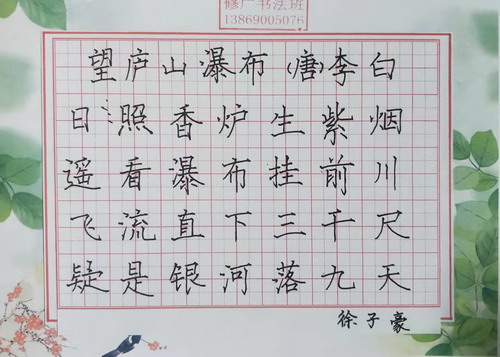 修广书法班
13869005076
望庐山瀑布 (唐)李白
日照香炉生紫烟
遥看瀑布挂前川
飞流直下三千尺
疑是银河落九天
徐子豪